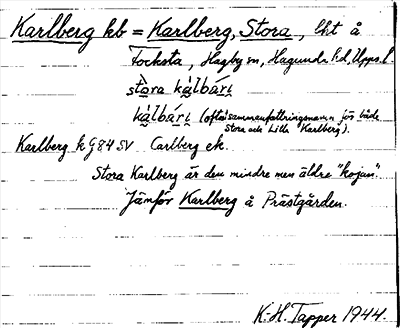 Karlberg kb = Karlberg, Stora, lht å
Focksta, Hagby sn, Hagunda hd, Upps. l.
stora kàlbári
kàlbári (ofta sammanfattningsnamn för både
Stora och Lilla Karlberg).
Karlberg k G 84 SV. Carlberg ek.
Stora Karlberg är den mindre men äldre "kojan".
Jämför Karlberg å Prästgården.
K-H. Tapper 1944.